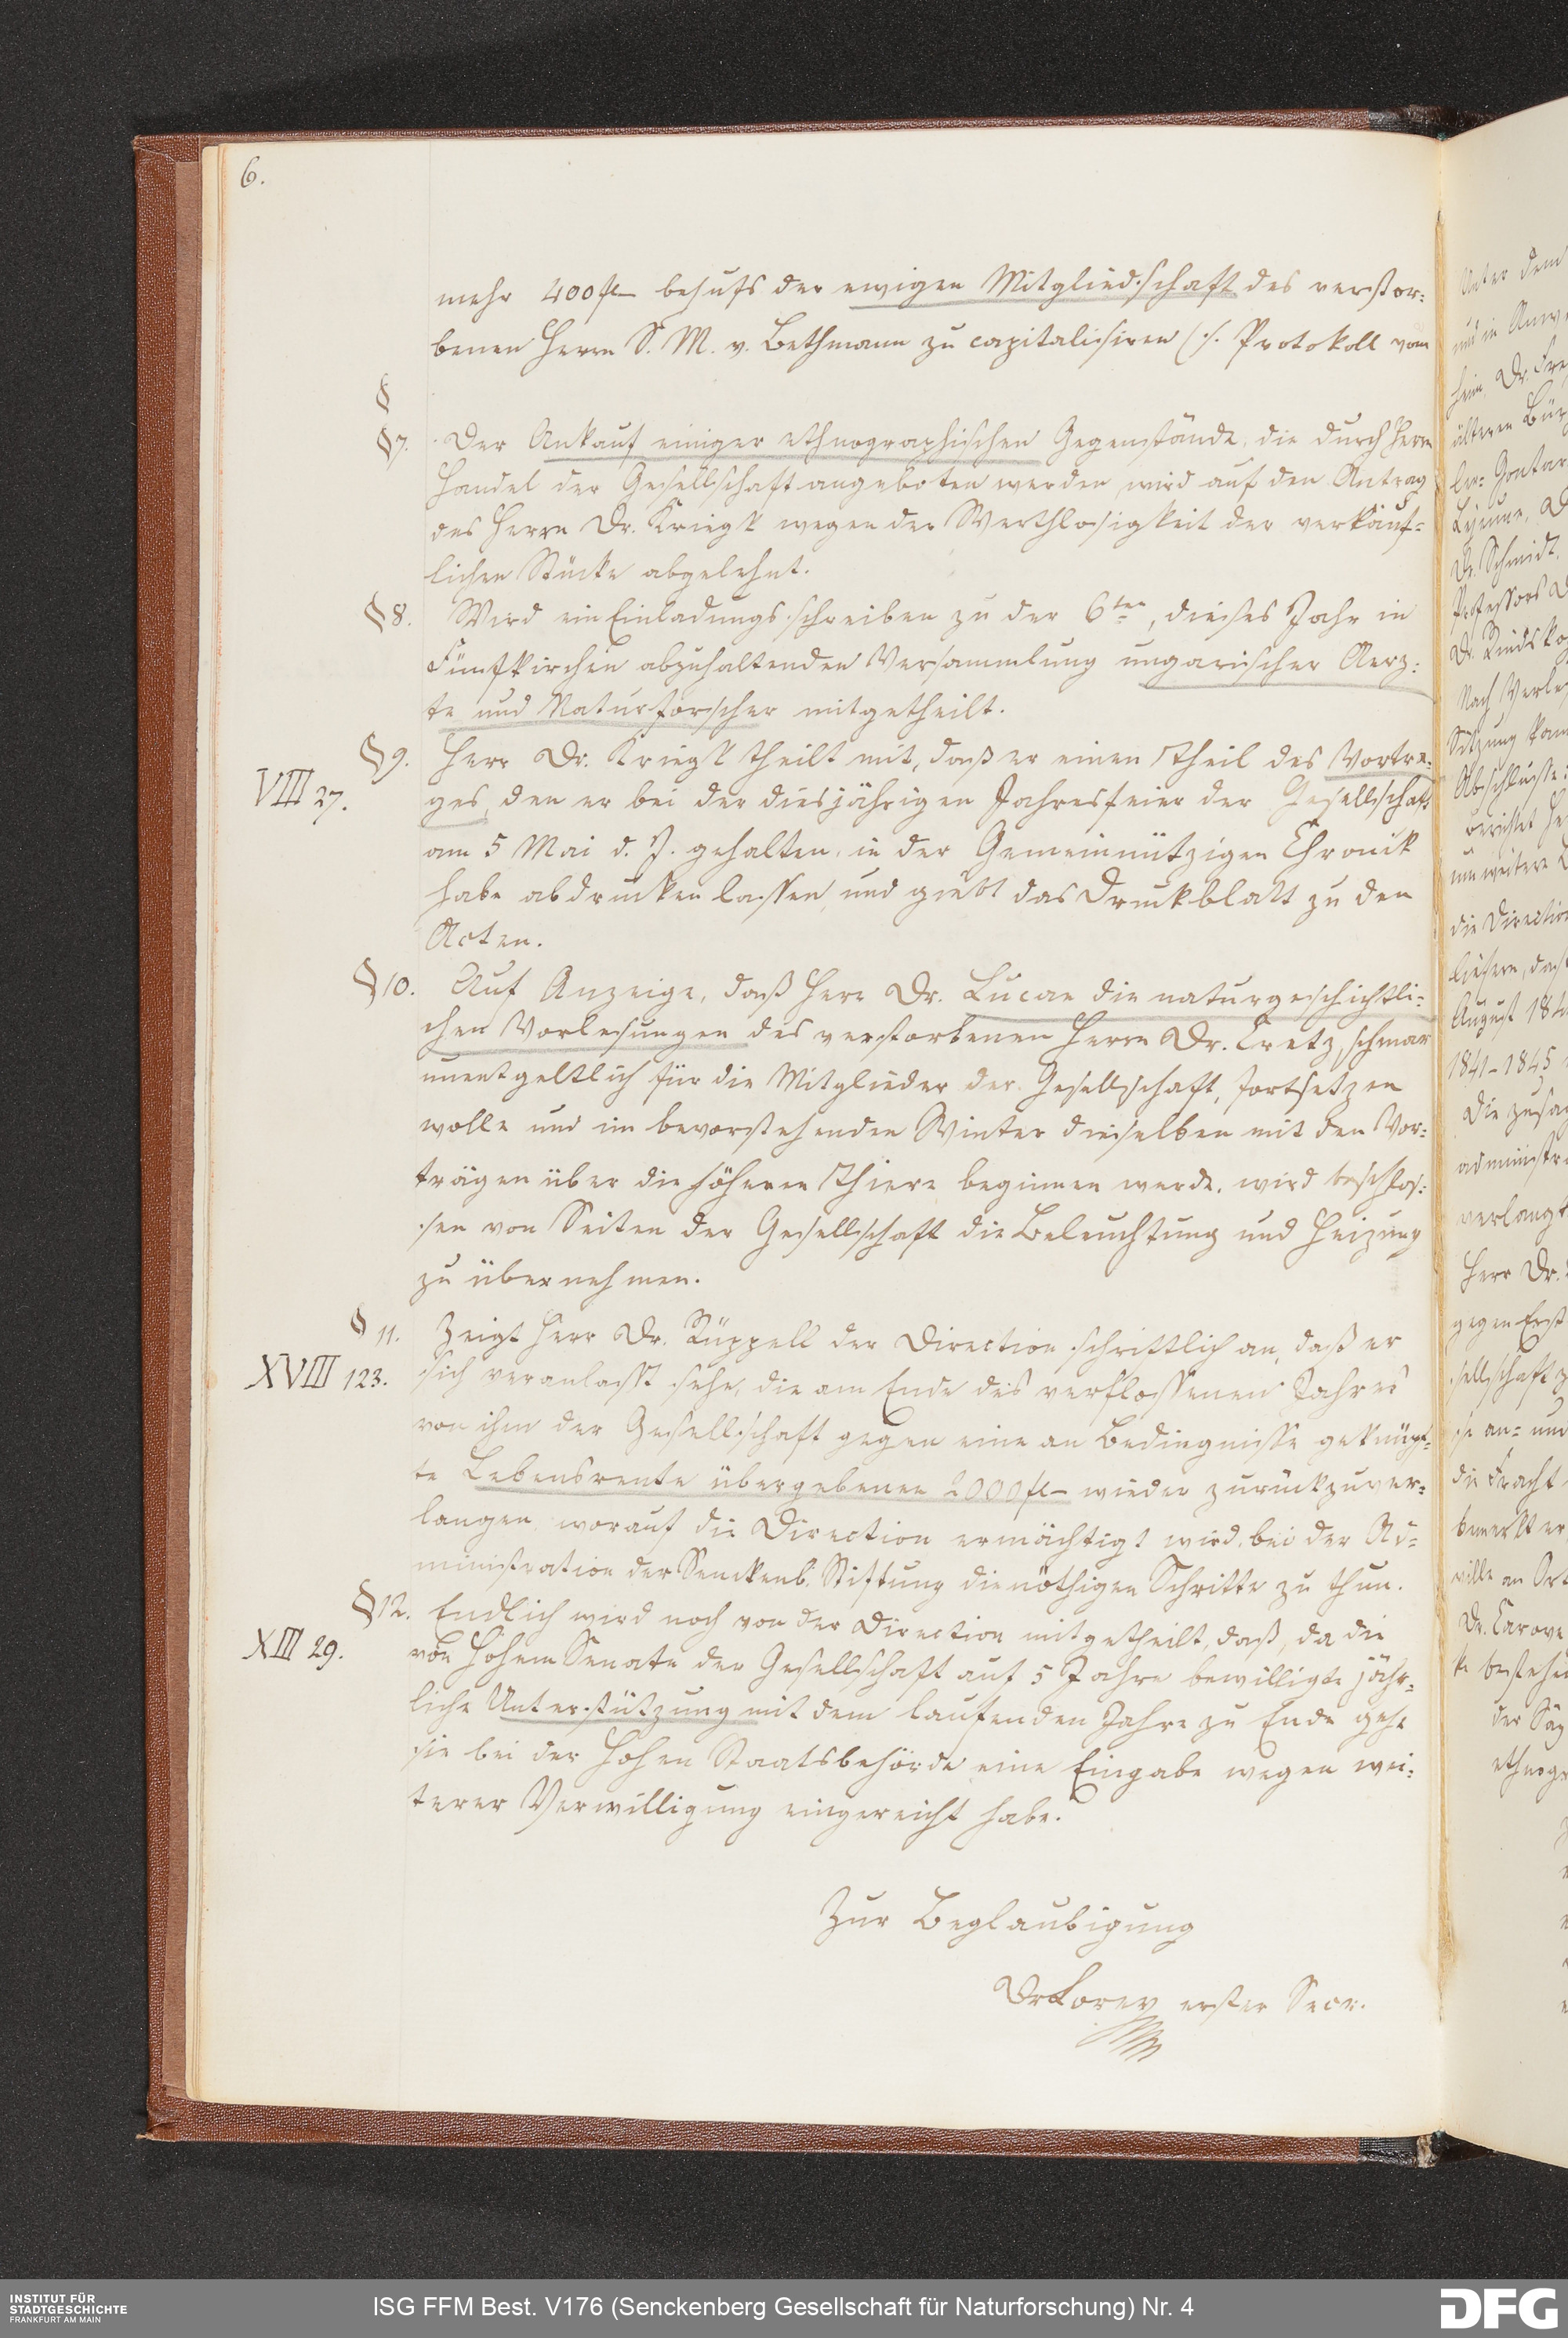 6.
mehr 400 fl– behufs der ewigen Mitgliedschaft des verstor:
benen Herrn S. M. v. Bethmann zu capitalisiren (s. Protokoll vom
§
§7. Der Ankauf einiger ethnographischen Gegenstände, die durch Herrn
Handel der Gesellschaft angeboten werden, wird auf den Antrag
des Herrn Dr. Kriegk wegen der Werthlosigkeit der verkäuf=
lichen Stücke abgelehnt.
§8. Wird ein Einladungsschreiben zu der 6ten, dieses Jahr in
Fünfkirchen abzuhaltenden Versammlung ungarischer Aerz:
te und Naturforscher mitgetheilt.
§9. Herr Dr. Kriegk theilt mit, daß er einen Theil des Vortra:
VIII 27.
ges, den er bei der diesjährigen Jahresfeier der Gesellschaft
am 5 Mai d. J. gehalten, in der Gemeinnützigen Chronik
habe abdrucken lassen, und giebt das Druckblatt zu den
Acten.
§10. Auf Anzeige, daß Herr Dr. Lucae die naturgeschichtli=
chen Vorlesungen des verstorbenen Herrn Dr. Cretzschmar
unentgeltlich für die Mitglieder der Gesellschaft, fortsetzen
wolle und im bevorstehenden Winter dieselben mit den Vor:
trägen über die höheren Thiere beginnen werde, wird beschlos:
sen von Seiten der Gesellschaft die Beleuchtung und Heizung
zu übernehmen.
§ 11. Zeigt Herr Dr. Rüppell der Direction schriftlich an, daß er
XVIII 123.
sich veranlasst sehe, die am Ende des verflossenen Jahres
von ihm der Gesellschaft gegen eine an Bedingnisse geknüpf=
te Lebensrente übergebenen 2000 fl– wieder zurückzuver=
langen, worauf die Direction ermächtigt wird, bei der Ad=
ministration der Senckenb. Stiftung die nöthigen Schritte zu thun.
§12. Endlich wird noch von der Direction mitgetheilt, daß, da die
XIII 29.
von Hohem Senate der Gesellschaft auf 5 Jahre bewilligte jähr=
liche Unterstützung mit dem laufenden Jahre zu Ende gehe
sie bei der Hohen Staatsbehörde eine Eingabe wegen wei:
terer Verwilligung eingereicht habe.
Zur Beglaubigung
Dr Lorey erster Secr.
INSTITUT FÜR
STADTGESCHICHTE
FRANKFURT AM MAIN
ISG FFM Best. V176 (Senckenberg Gesellschaft für Naturforschung) Nr. 4
DFG